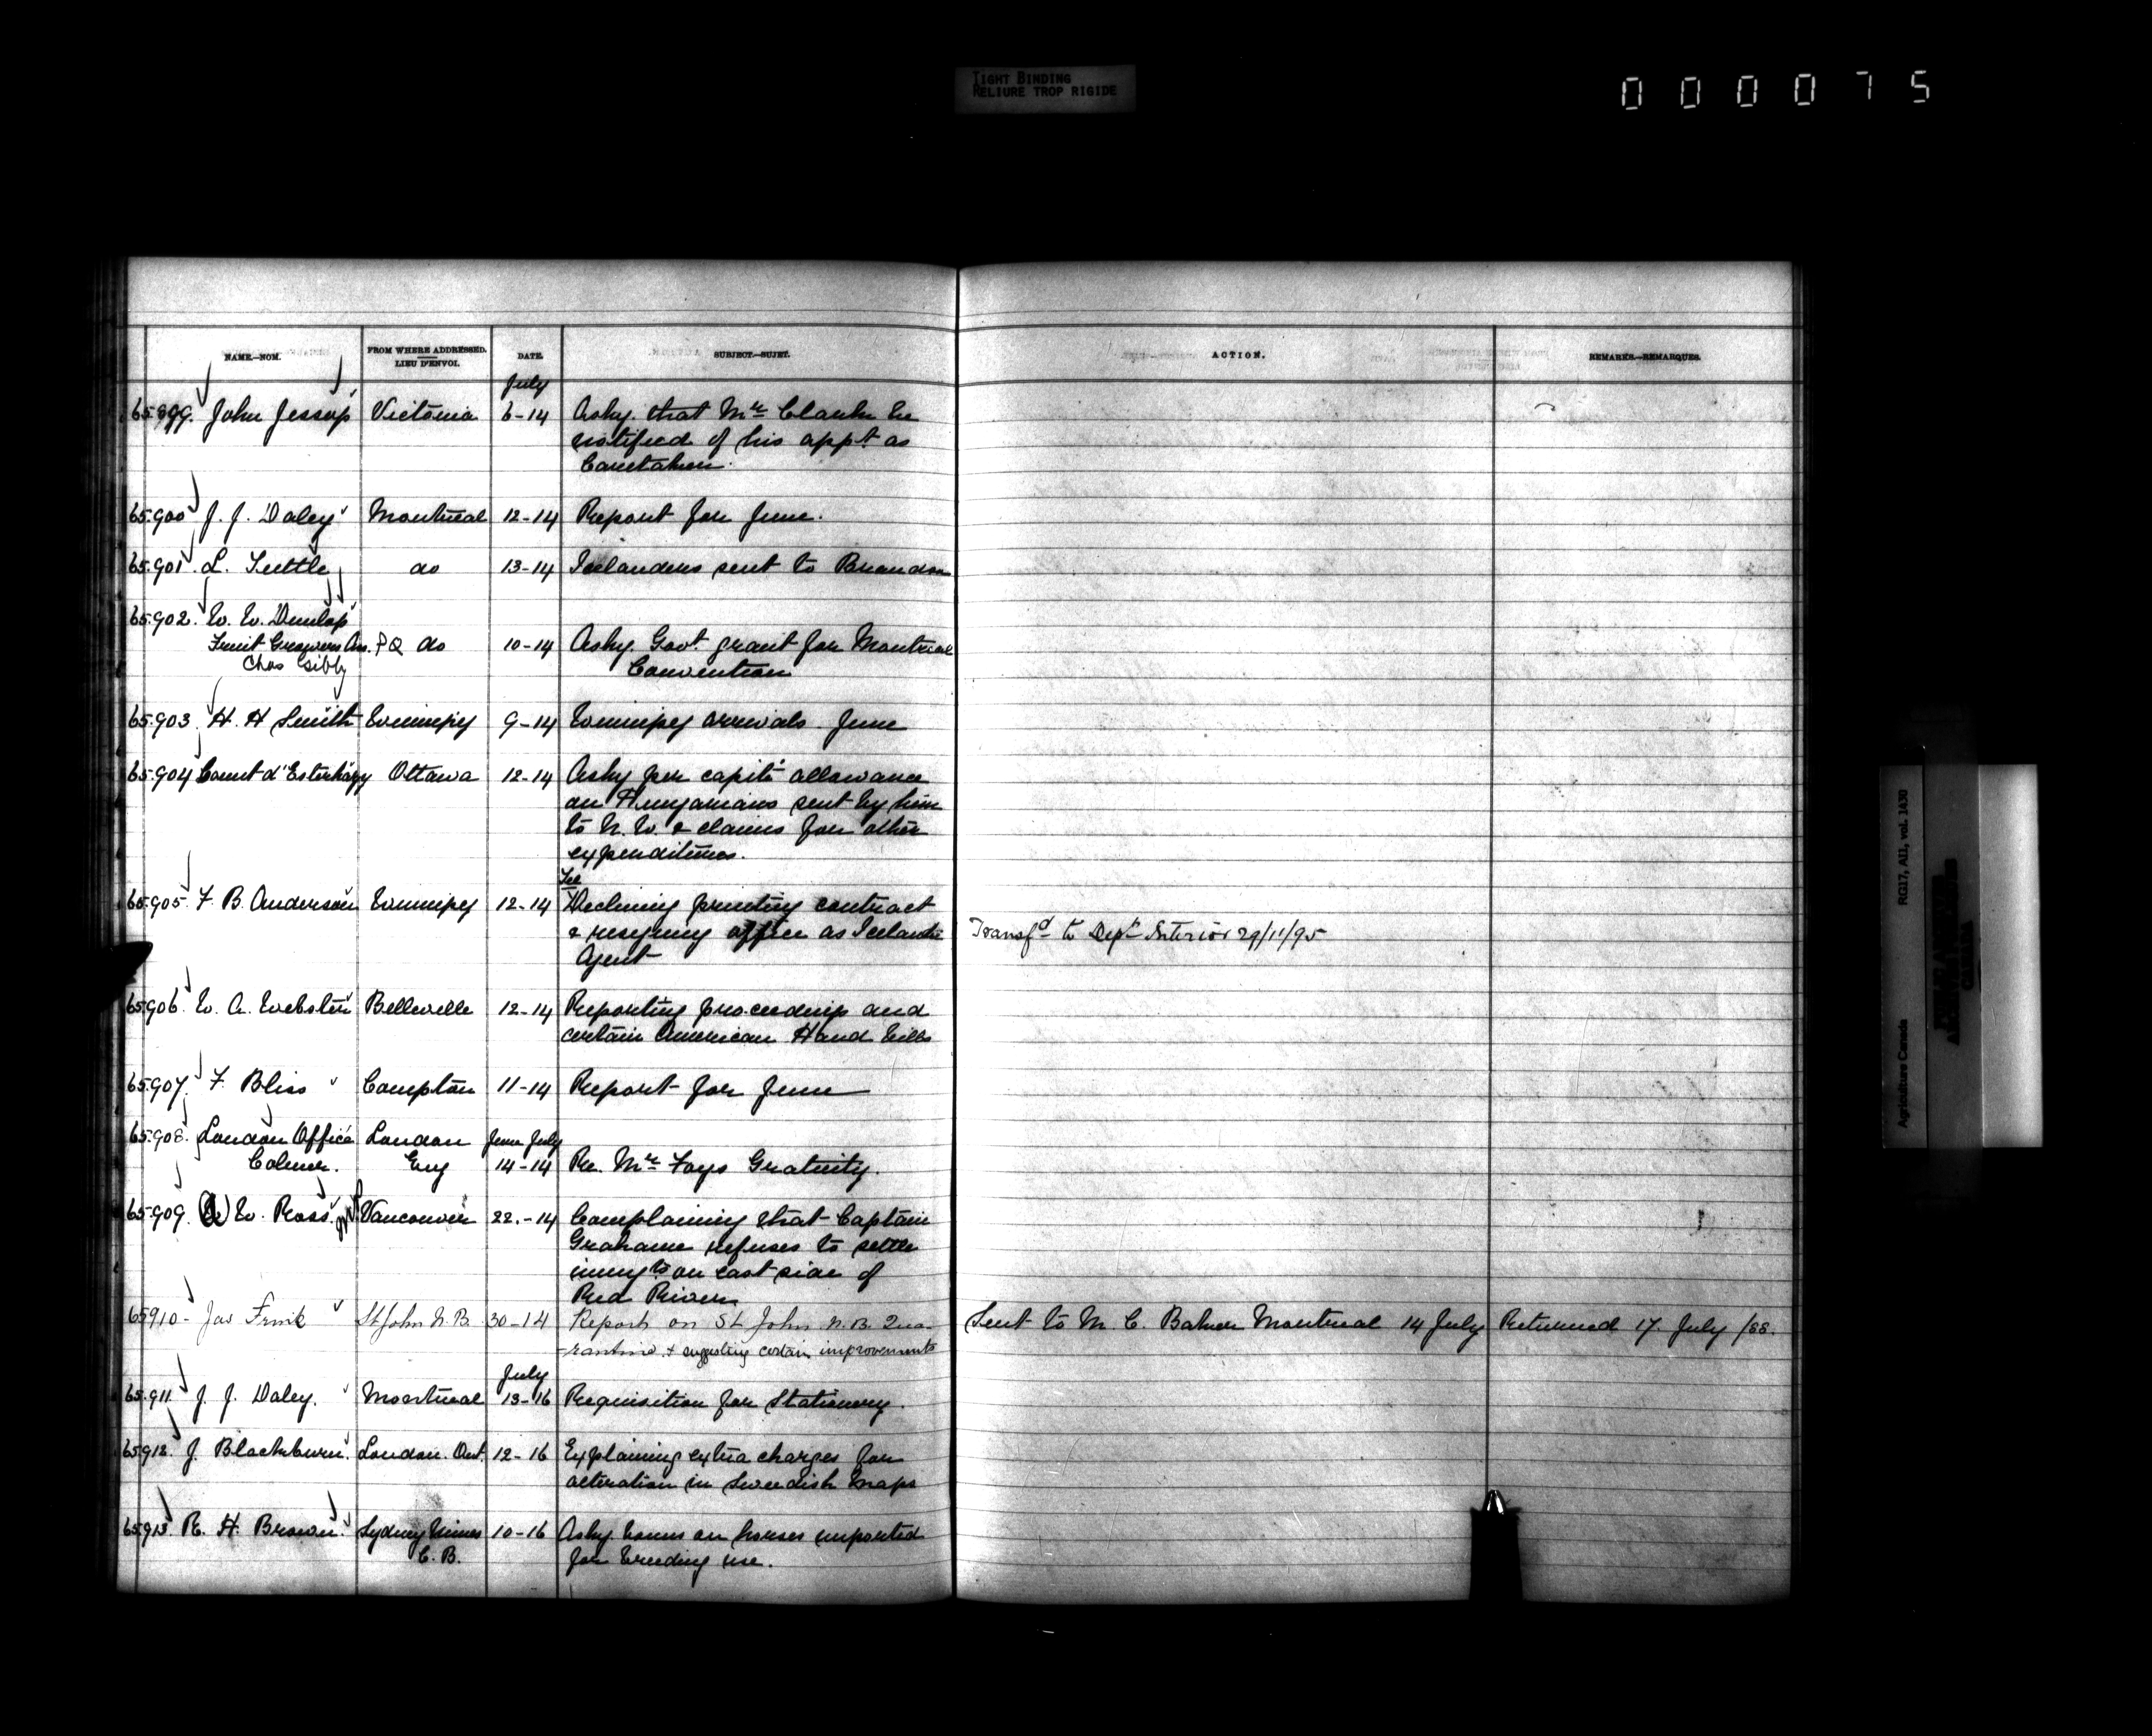 TIGHT BINDING
RELIURE TROP RIGIDE
000075
NAME.—NOM.
FROM WHERE ADDRESSED.
LIEU D'ENVOI.
DATE.
SUBJECT.—SUJET.
ACTION.
REMARKS.—REMARQUES.
July
65.899. John Jessop Victoria 6-14 Askg. that Mr Clarke be
notified of his appt. as
Caretaker.
65.900 J. J. Daley Montreal 12-14 Report for June.
65.901 L. Tuttle do 13-14 Icelanders sent to Brandon
65.902. W. W. Dunlop
Fruit Growers Ass. P Q do 10-14 Askg. Govt. grant for Montreal
Chas Gibb Convention
65.903. H. H Smith Winnipeg 9-14 Winnipeg arrivals June
65.904 Count d'Esterhazy Ottawa 12-14 Askg per capita allowance
on Hungarians sent by him
to N. W. & claims for other
expenditures.
Ice
65.905. F. B. Anderson Winnipeg 12-14 Declining printing contract
& resigning office as Icelandic Transfd to Dept Interior 29/11/95
Agent
65.906. W. A. Webster Belleville 12-14 Reporting proceedings and
certain American Hand bills
65.907. F. Bliss Compton 11-14 Report for June
65.908. London Office London June July
Colmer. Eng 14-14 Re. Mr Foys Gratuity.
65.909. A W. Ross. Vancouver 22.-14 Complaining that Captain
Grahame refuses to settle
immgts on east side of
Red River
65910- Jas Frink St John N.B. 30-14 Report on St John N.B. Qua- Sent to M. C. Baker Montreal 14 July Returned 17. July /88.
-rantine & suggesting certain improvements
July
65.911. J. J. Daley. Montreal 13-16 Requisition for Stationery.
65.912. J. Blackburn. London. Ont. 12-16 Explaining extra charges for
alteration in Swedish Maps
65.913. R. H. Brown. Sydney Mines 10-16 Askg bonus on horses imported
C. B. for breeding use.
Agriculture Canada RG17, AII, vol. 1430
PUBLIC ARCHIVES
ARCHIVES PUBLIQUES
CANADA